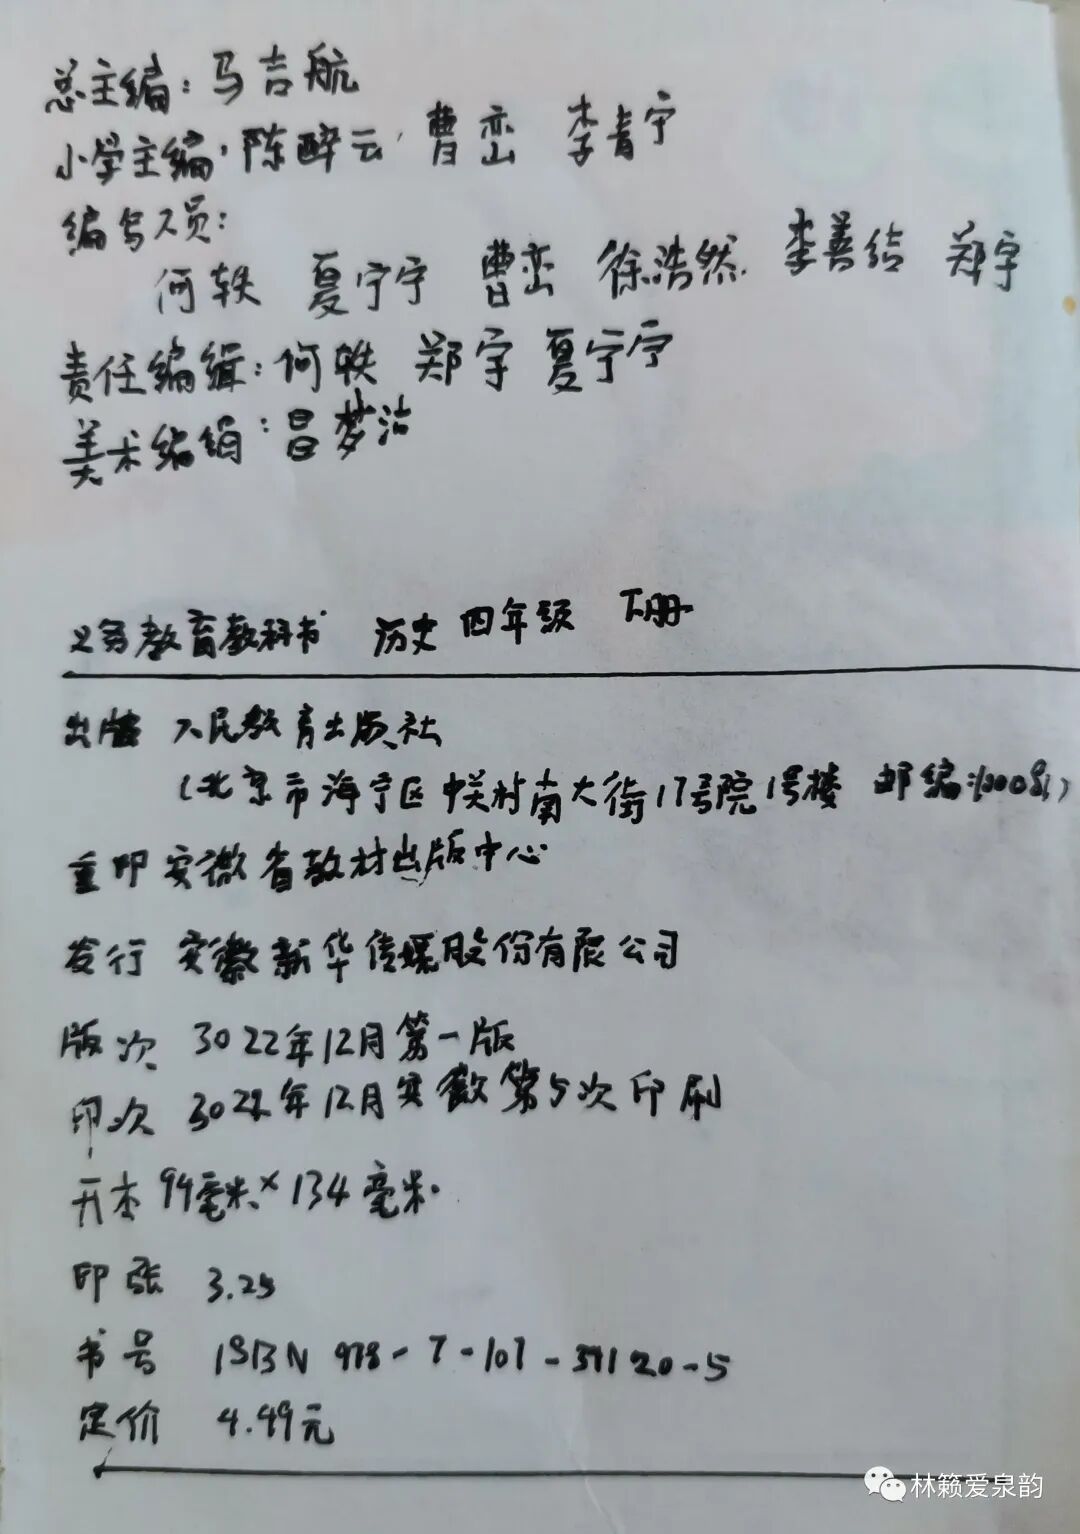 总主编：马吉航
小学主编：陈醉云 曹峦 李青宁
编写人员：
何轶 夏宁宁 曹峦 徐浩然 李善结 郑宇
责任编辑：何轶 郑宇 夏宁宁
美术编辑：吕梦洁
义务教育教科书 历史 四年级 下册
出版 人民教育出版社
（北京市海宁区中关村南大街17号院1号楼 邮编：100081）
重印 安徽省教材出版中心
发行 安徽新华传媒股份有限公司
版次 3022年12月第一版
印次 302年12月安徽第5次印刷
开本 94毫米×134毫米
印张 3.25
书号 ISBN 978-7-107-37120-5
定价 4.49元
林籁爱泉韵